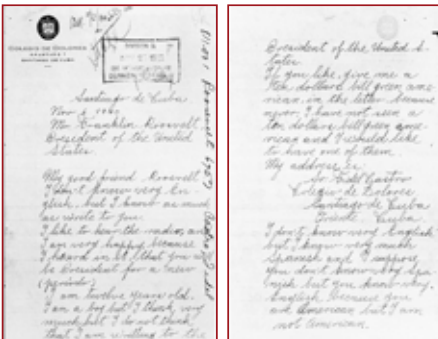 COLEGIO DE DOLORES
SANTIAGO DE CUBA
Santiago de Cuba
Nov 6 1940
Mr Franklin Roosvelt
President of the United
States
My good friend Roosvelt
I don't know very En
glish, but I know as much
as write to you.
I like to hear the radio, and
I am very happy, because
I heard in it, that you will
be President for a new
(periodo)
I am twelve years old.
I am a boy but I think very
much but I do not think
that I am writting to the
President of the United S-
tates
If you like, give me a
ten dollars bill green ame-
rican, in the letter, because
never, I have not seen a
ten dollars bill green ame-
rican and I would like
to have one of them.
My address is
Sr. Fidel Castro
Colegio de Dolores
Santiago de Cuba
Oriente Cuba
I don't know very English
but I know very much
Spanish and I suppose
you don't know very Spa
nish but you know very
English because you
are American but I am
not American.